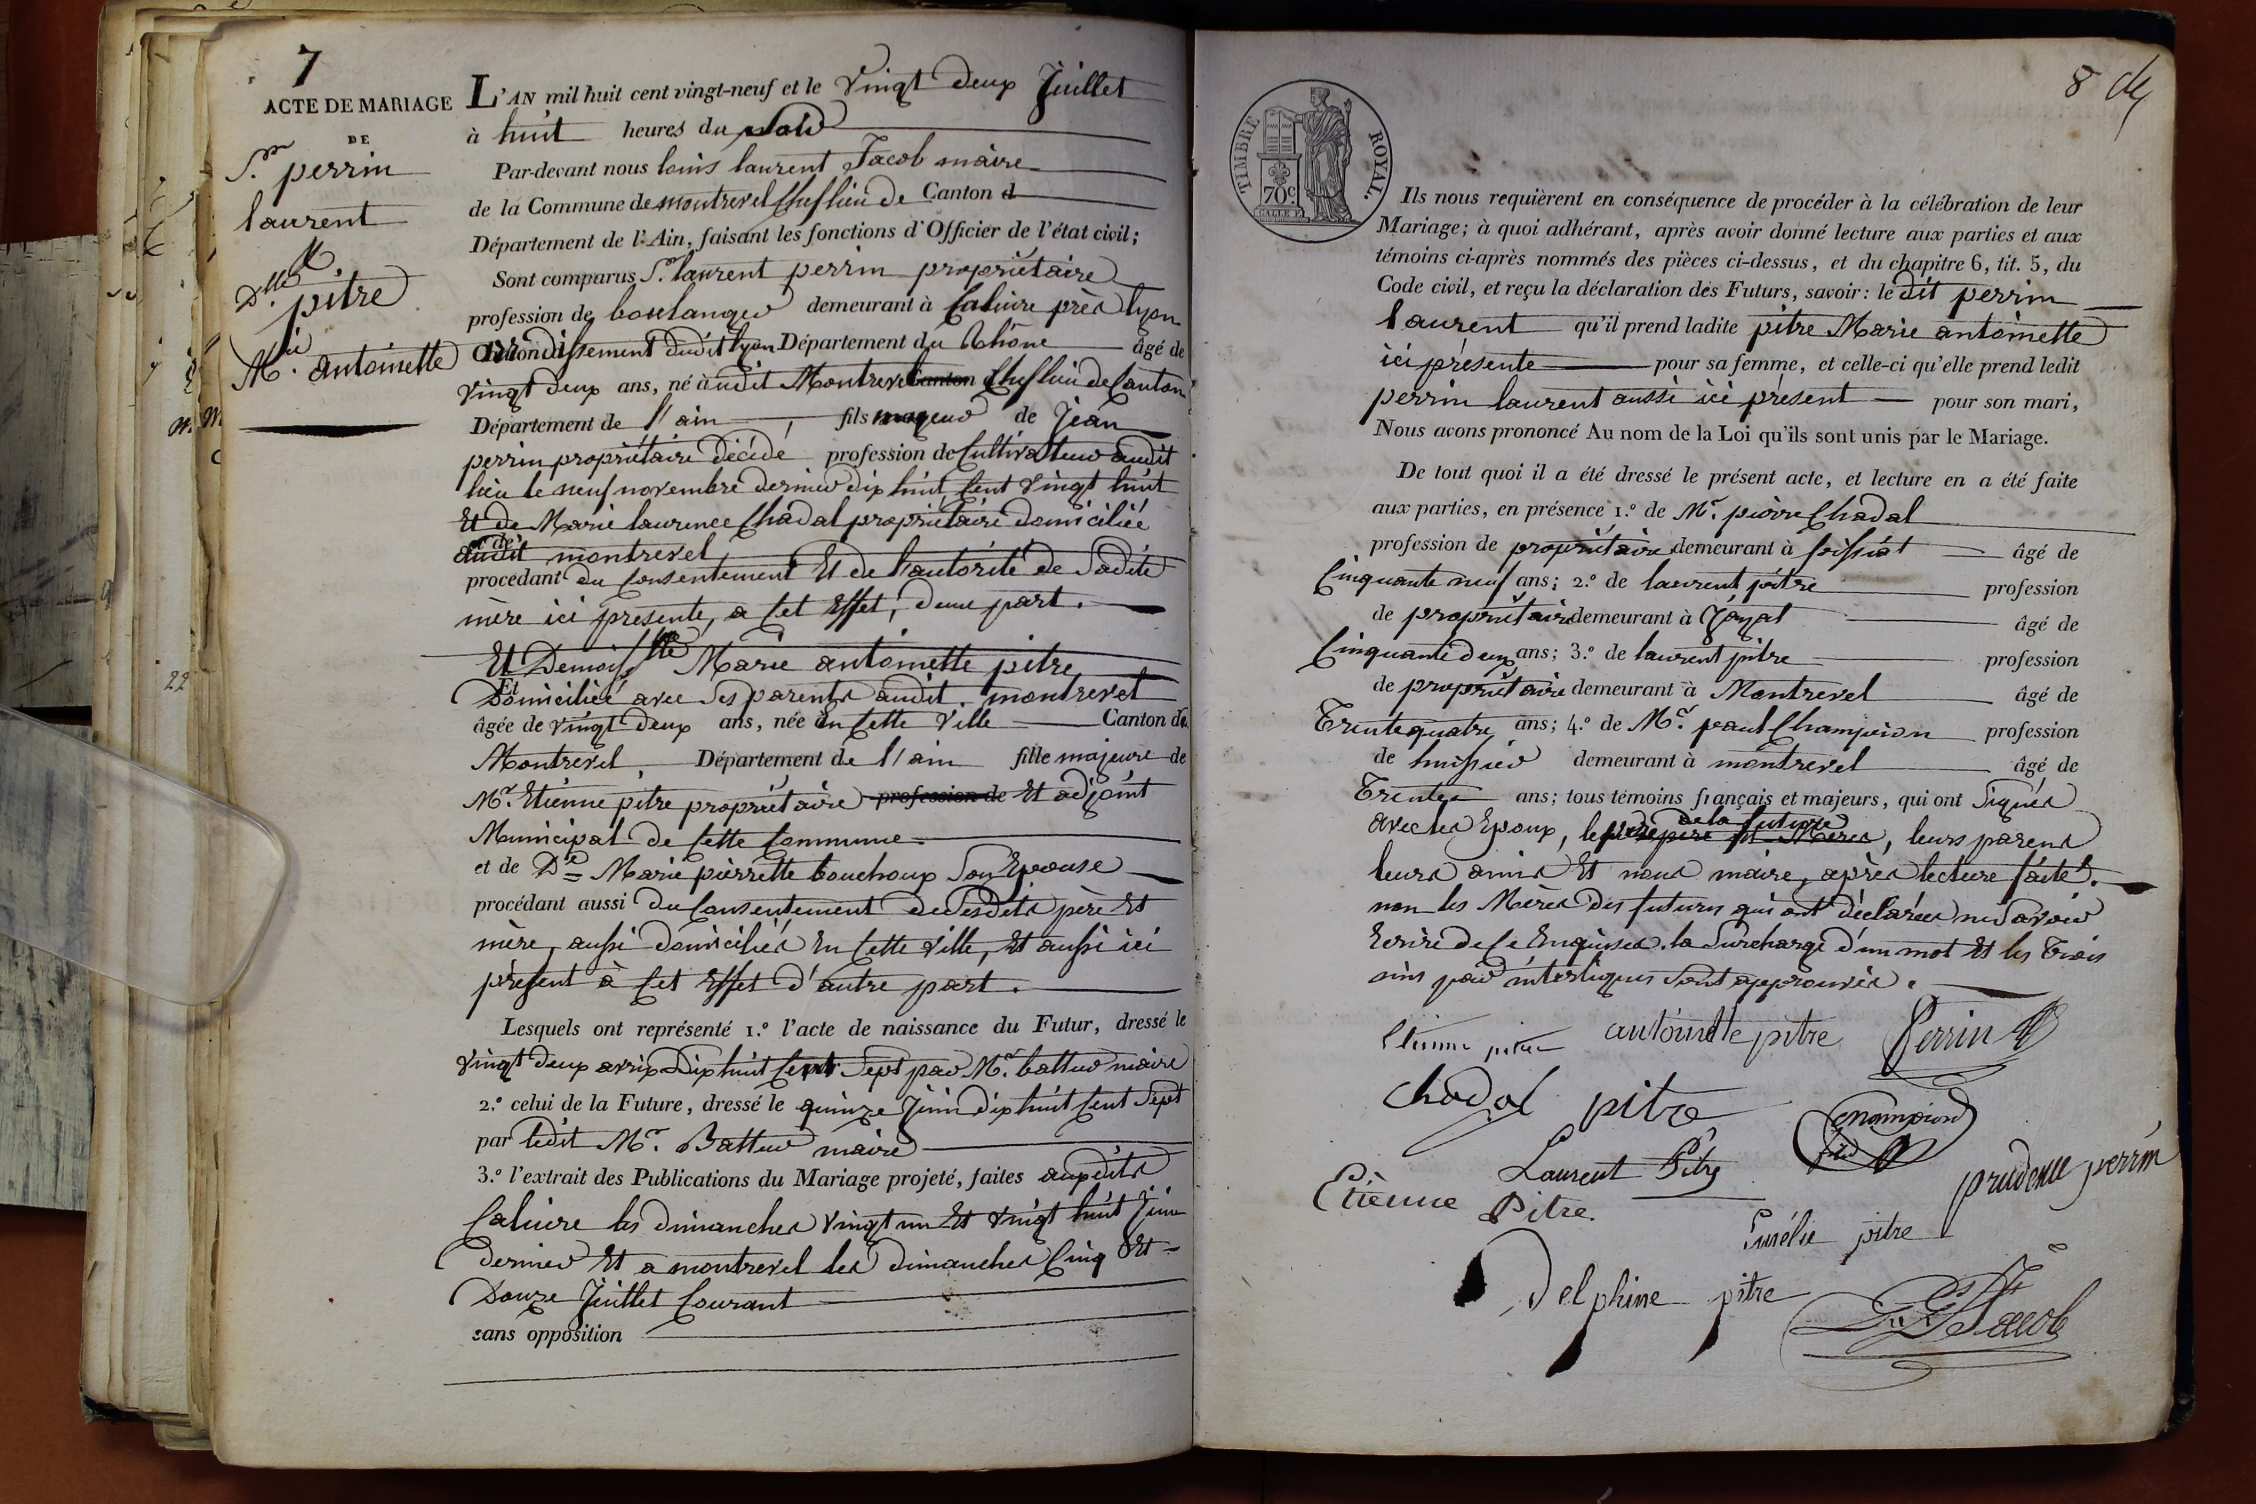 7
ACTE DE MARIAGE
DE
Sr. perrin
laurent
&
Dlle. pitre
Mie. antoinette
L'AN mil huit cent vingt-neuf et le vingt deux Juillet
à huit heures du soir
Par-devant nous louis laurent Jacob maire
de la Commune de montrevel Cheflieu de Canton d
Département de l'Ain, faisant les fonctions d'Officier de l'état civil;
Sont comparus Sr. laurent perrin propriétaire
profession de boulanger demeurant à Caluire près lyon
arrondissement dudit lyon Département du Rhône âgé de
vingt deux ans, né audit Montrevel Canton Cheflieu de Canton
Département de l'ain, fils majeur de Jean
perrin propriétaire décédé profession de Cultivateur audit
lieu le neuf novembre dernier dix huit Cent vingt huit
Et de Marie laurence Chadal propriétaire domiciliée
audit montrevel
procédant du Consentement Et de l'autorité de Sadite
mère ici présente, a Cet Effet, d'une part.
Et Demoiselle Marie antoinette pitre
Domiciliée avec Ses parents audit montrevel
âgée de vingt deux ans, née en Cette ville Canton de
Montrevel, Département de l'ain fille majeure de
Mr. Etienne pitre propriétaire profession de Et adjoint
Municipal de Cette Commune
et de De Marie pierrette bouchoux Son Epouse
procédant aussi du Consentement de Sesdits père Et
mère, aussi domiciliés En Cette ville, Et aussi ici
présent à Cet Effet d'autre part.
Lesquels ont représenté 1.º l'acte de naissance du Futur, dressé le
vingt deux avril Dix huit Cent Sept par Mr. battur maire
2.º celui de la Future, dressé le quinze Juin dix huit Cent Sept
par ledit Mr. Battur maire
3.º l'extrait des Publications du Mariage projeté, faites auxdits
Caluire les dimanches vingt un Et vingt huit Juin
dernier Et a montrevel les dimanches Cinq Et
Douze Juillet Courant
sans opposition
8
TIMBRE ROYAL.
70c
Ils nous requièrent en conséquence de procéder à la célébration de leur
Mariage; à quoi adhérant, après avoir donné lecture aux parties et aux
témoins ci-après nommés des pièces ci-dessus, et du chapitre 6, tit. 5, du
Code civil, et reçu la déclaration des Futurs, savoir: le dit perrin
laurent qu'il prend ladite pitre Marie antoinette
ici présente pour sa femme, et celle-ci qu'elle prend ledit
perrin laurent aussi ici présent pour son mari,
Nous avons prononcé Au nom de la Loi qu'ils sont unis par le Mariage.
De tout quoi il a été dressé le présent acte, et lecture en a été faite
aux parties, en présence 1.º de Mr. pierre Chadal
profession de propriétaire demeurant à foissiat âgé de
Cinquante neuf ans; 2.º de laurent pitre profession
de propriétaire demeurant à Jayat âgé de
Cinquante deux ans; 3.º de laurent pitre profession
de propriétaire demeurant à Montrevel âgé de
Trente quatre ans; 4.º de Mr. paul Champion profession
de huissier demeurant à montrevel âgé de
Trente ans; tous témoins français et majeurs, qui ont Signés
de la future
avec les Epoux, le père, leurs parens
leurs amis Et nous maire, après lecture faite.
non les Mères des futurs qui ont déclarées ne Savoir
Ecrire de Ce Enquises. la Surcharge d'un mot Et les trois
mis par interlignes Sont approuvés.
Etienne pitre antoinette pitre Perrin
Chadal pitre Champion
Laurent Pitre
prudence perrin
Etienne Pitre.
pitre
Delphine pitre
Jacob